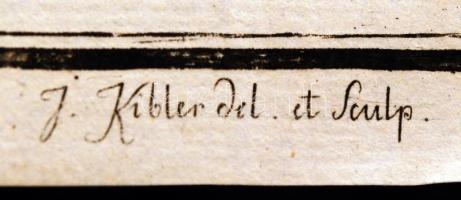 J. Kibler del. et Sculp.